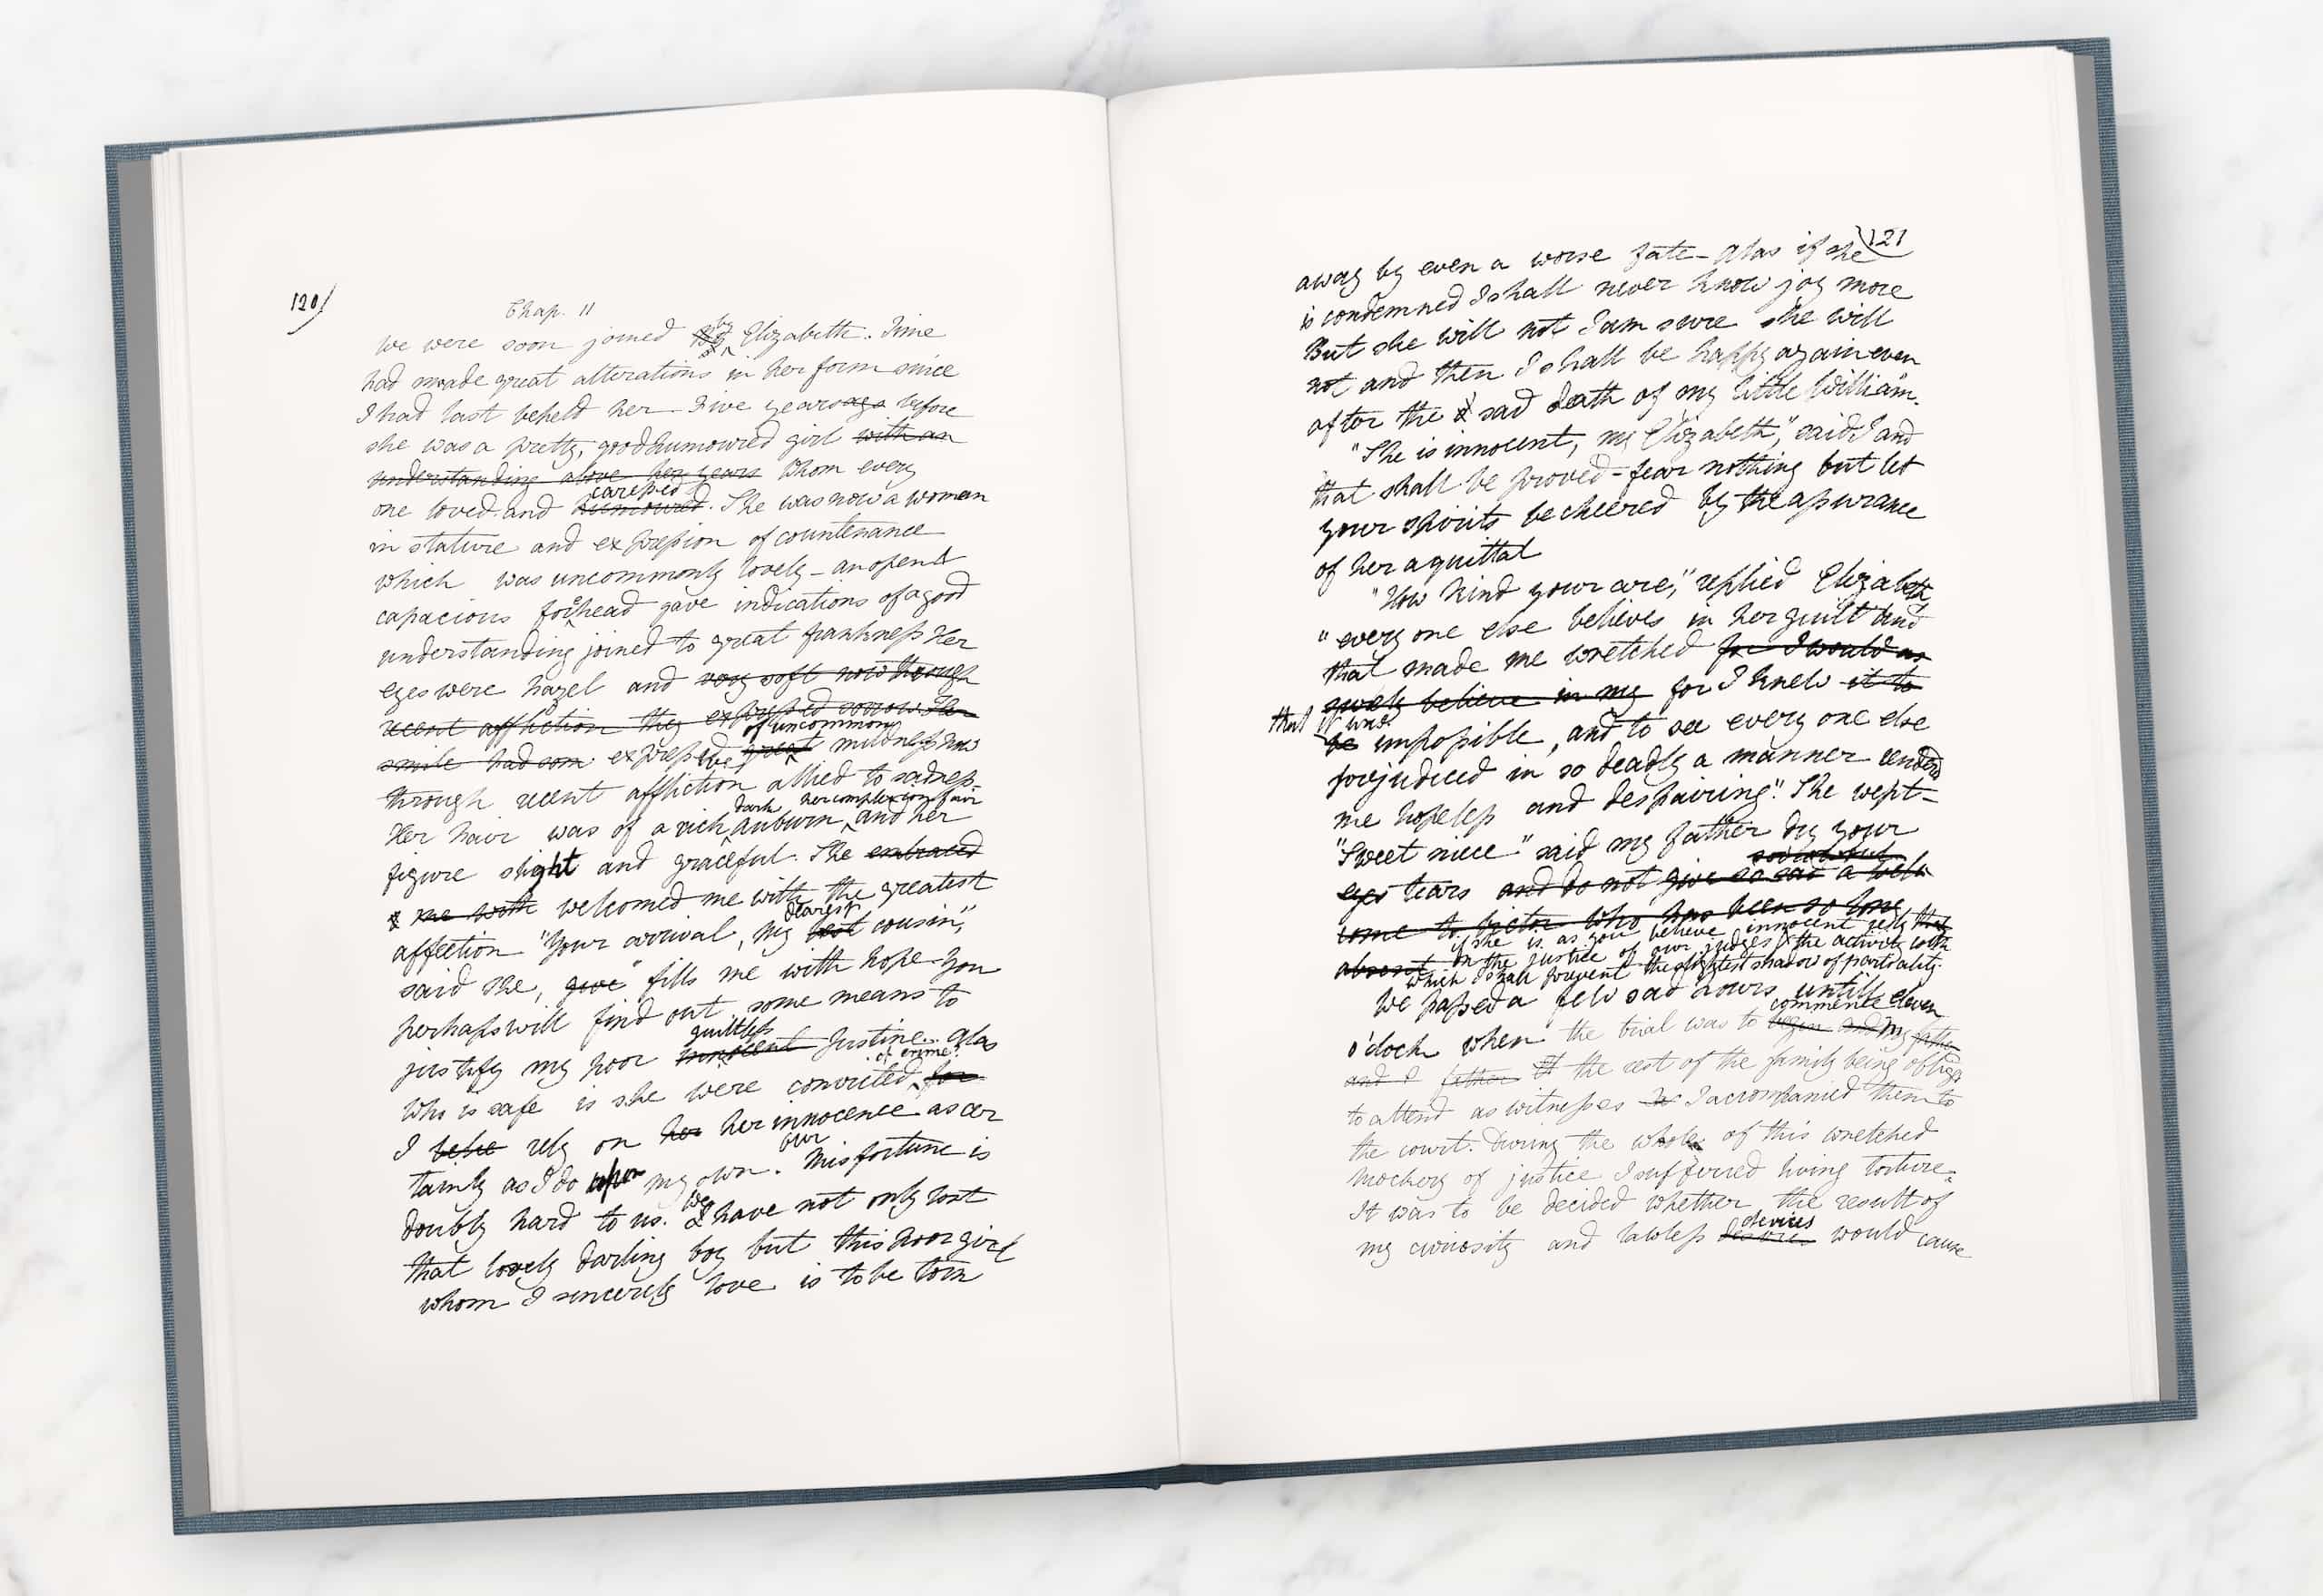 120
Chap. 11
We were soon joined by Elizabeth. Time
had made great alterations in her form since
I had last beheld her. Five years ago before
she was a pretty, good humoured girl with an
understanding above her years whom every
caressed
one loved and humoured. She was now a woman
in stature and expression of countenance
which was uncommonly lovely – an open &
capacious forehead gave indications of a good
understanding joined to great frankness Her
eyes were hazel and very soft now through
recent affliction they expressed sorrow Her
of uncommon
smile had som expressive great mildness now
through recent affliction allied to sadness
dark her complexion fair
Her hair was of a rich auburn, and her
figure slight and graceful. She embraced
& me with welcomed me with the greatest
dearest
affection "Your arrival, my best cousin,"
said she, give "fills me with hope – You
perhaps will find out some means to
guiltless
justify my poor innocent Justine.. Alas
of crime?
Who is safe is she were convicted for
I belie rely on her her innocence as cer
tainly as I do upon my own. our Misfortune is
we
doubly hard to us. I have not only lost
that lovely darling boy but this poor girl
whom I sincerely love is to be torn
121
away by even a worse fate – Alas if she
is condemned I shall never know joy more
But she will not I am sure she will
not and then I shall be happy again even
after the & sad death of my little William.
"She is innocent, my Elizabeth," said I and
that shall be proved – fear nothing but let
your spirits be cheered by the assurance
of her aquittal
"How kind your are," replied Elizabeth
"every one else believes in her guilt and
that made me wretched for I would as
surely believe in my for I knew it to
that it was
be impossible, and to see every one else
prejudiced in so deadly a manner rendered
me hopeless and despairing". She wept –
"Sweet niece" said my father dry your
sorrowful
eyes tears and do not give so sad a wel
come to Victor who has been so long
if she is as you believe innocent rely
absent on the justice of our judges & the activity with
which I shall prevent the slightest shadow of partiality.
We passed a few sad hours untill eleven
commence
o'clock when the trial was to began and my father
and I father & the rest of the family being obliged
to attend as witnesses I accompanied them to
the court. During the whole of this wretched
mockery of justice I suffered living torture.
It was to be decided whether the result of
devices
my curiosity and lawless desires would cause